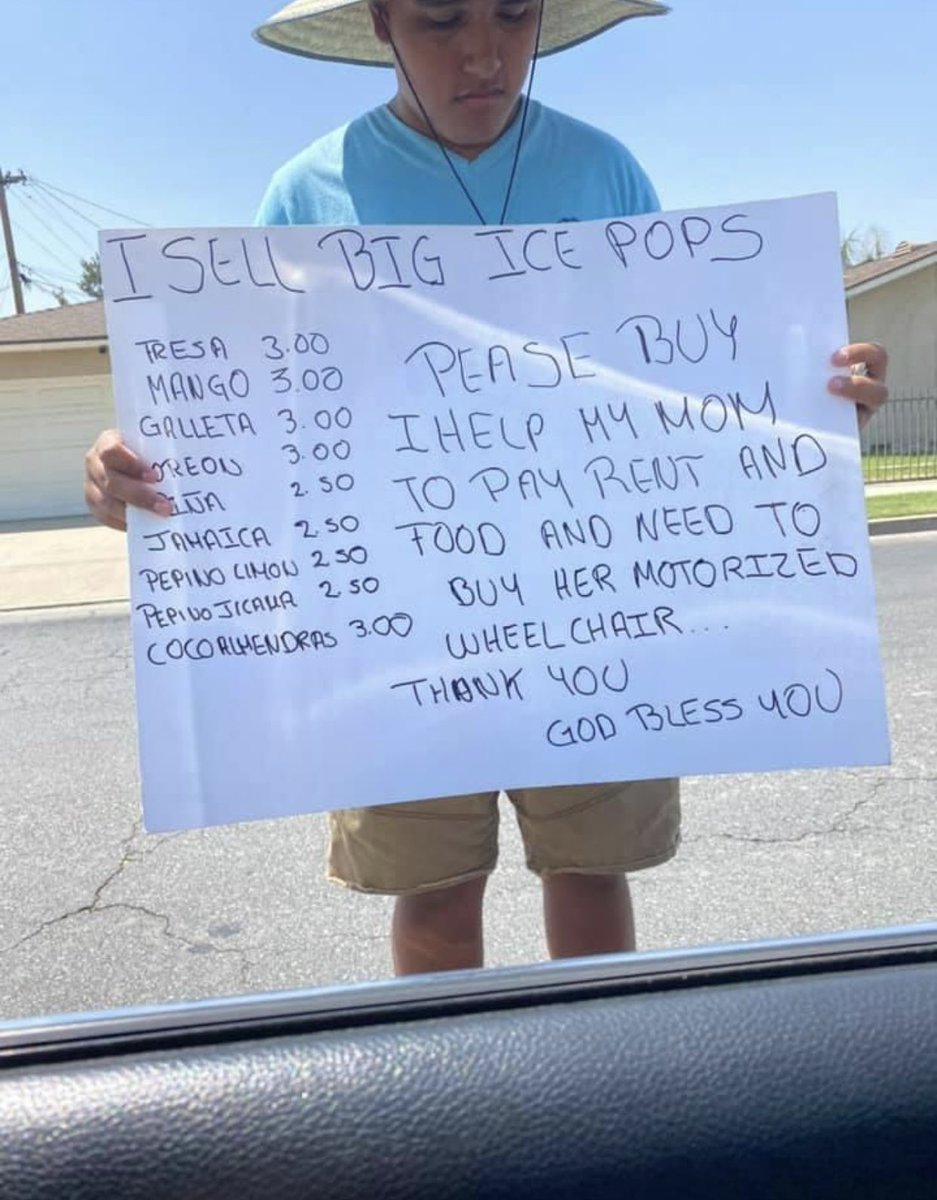 I SELL BIG ICE POPS
TRESA 3.00
MANGO 3.00
GALLETA 3.00
OREON 3.00
2.50
JAMAICA 2.50
PEPINO LIMON 2.50
PEPINO JICAMA 2.50
COCO ALMENDRAS 3.00
PEASE BUY
I HELP MY MOM
TO PAY RENT AND
FOOD AND NEED TO
BUY HER MOTORIZED
WHEEL CHAIR...
THANK YOU
GOD BLESS YOU